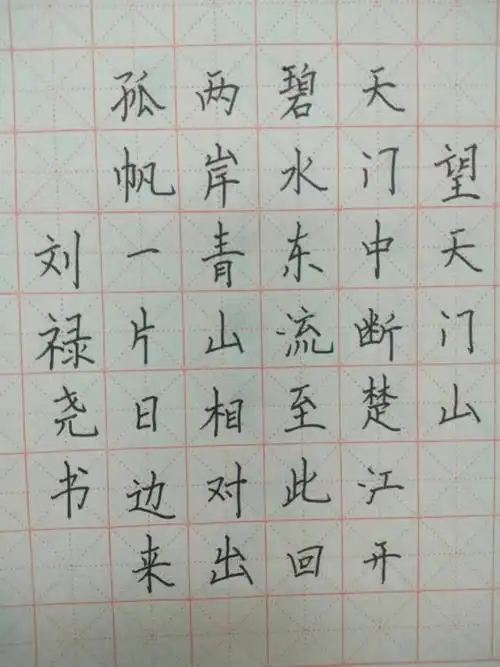 望天门山
天门中断楚江开
碧水东流至此回
两岸青山相对出
孤帆一片日边来
刘禄尧书